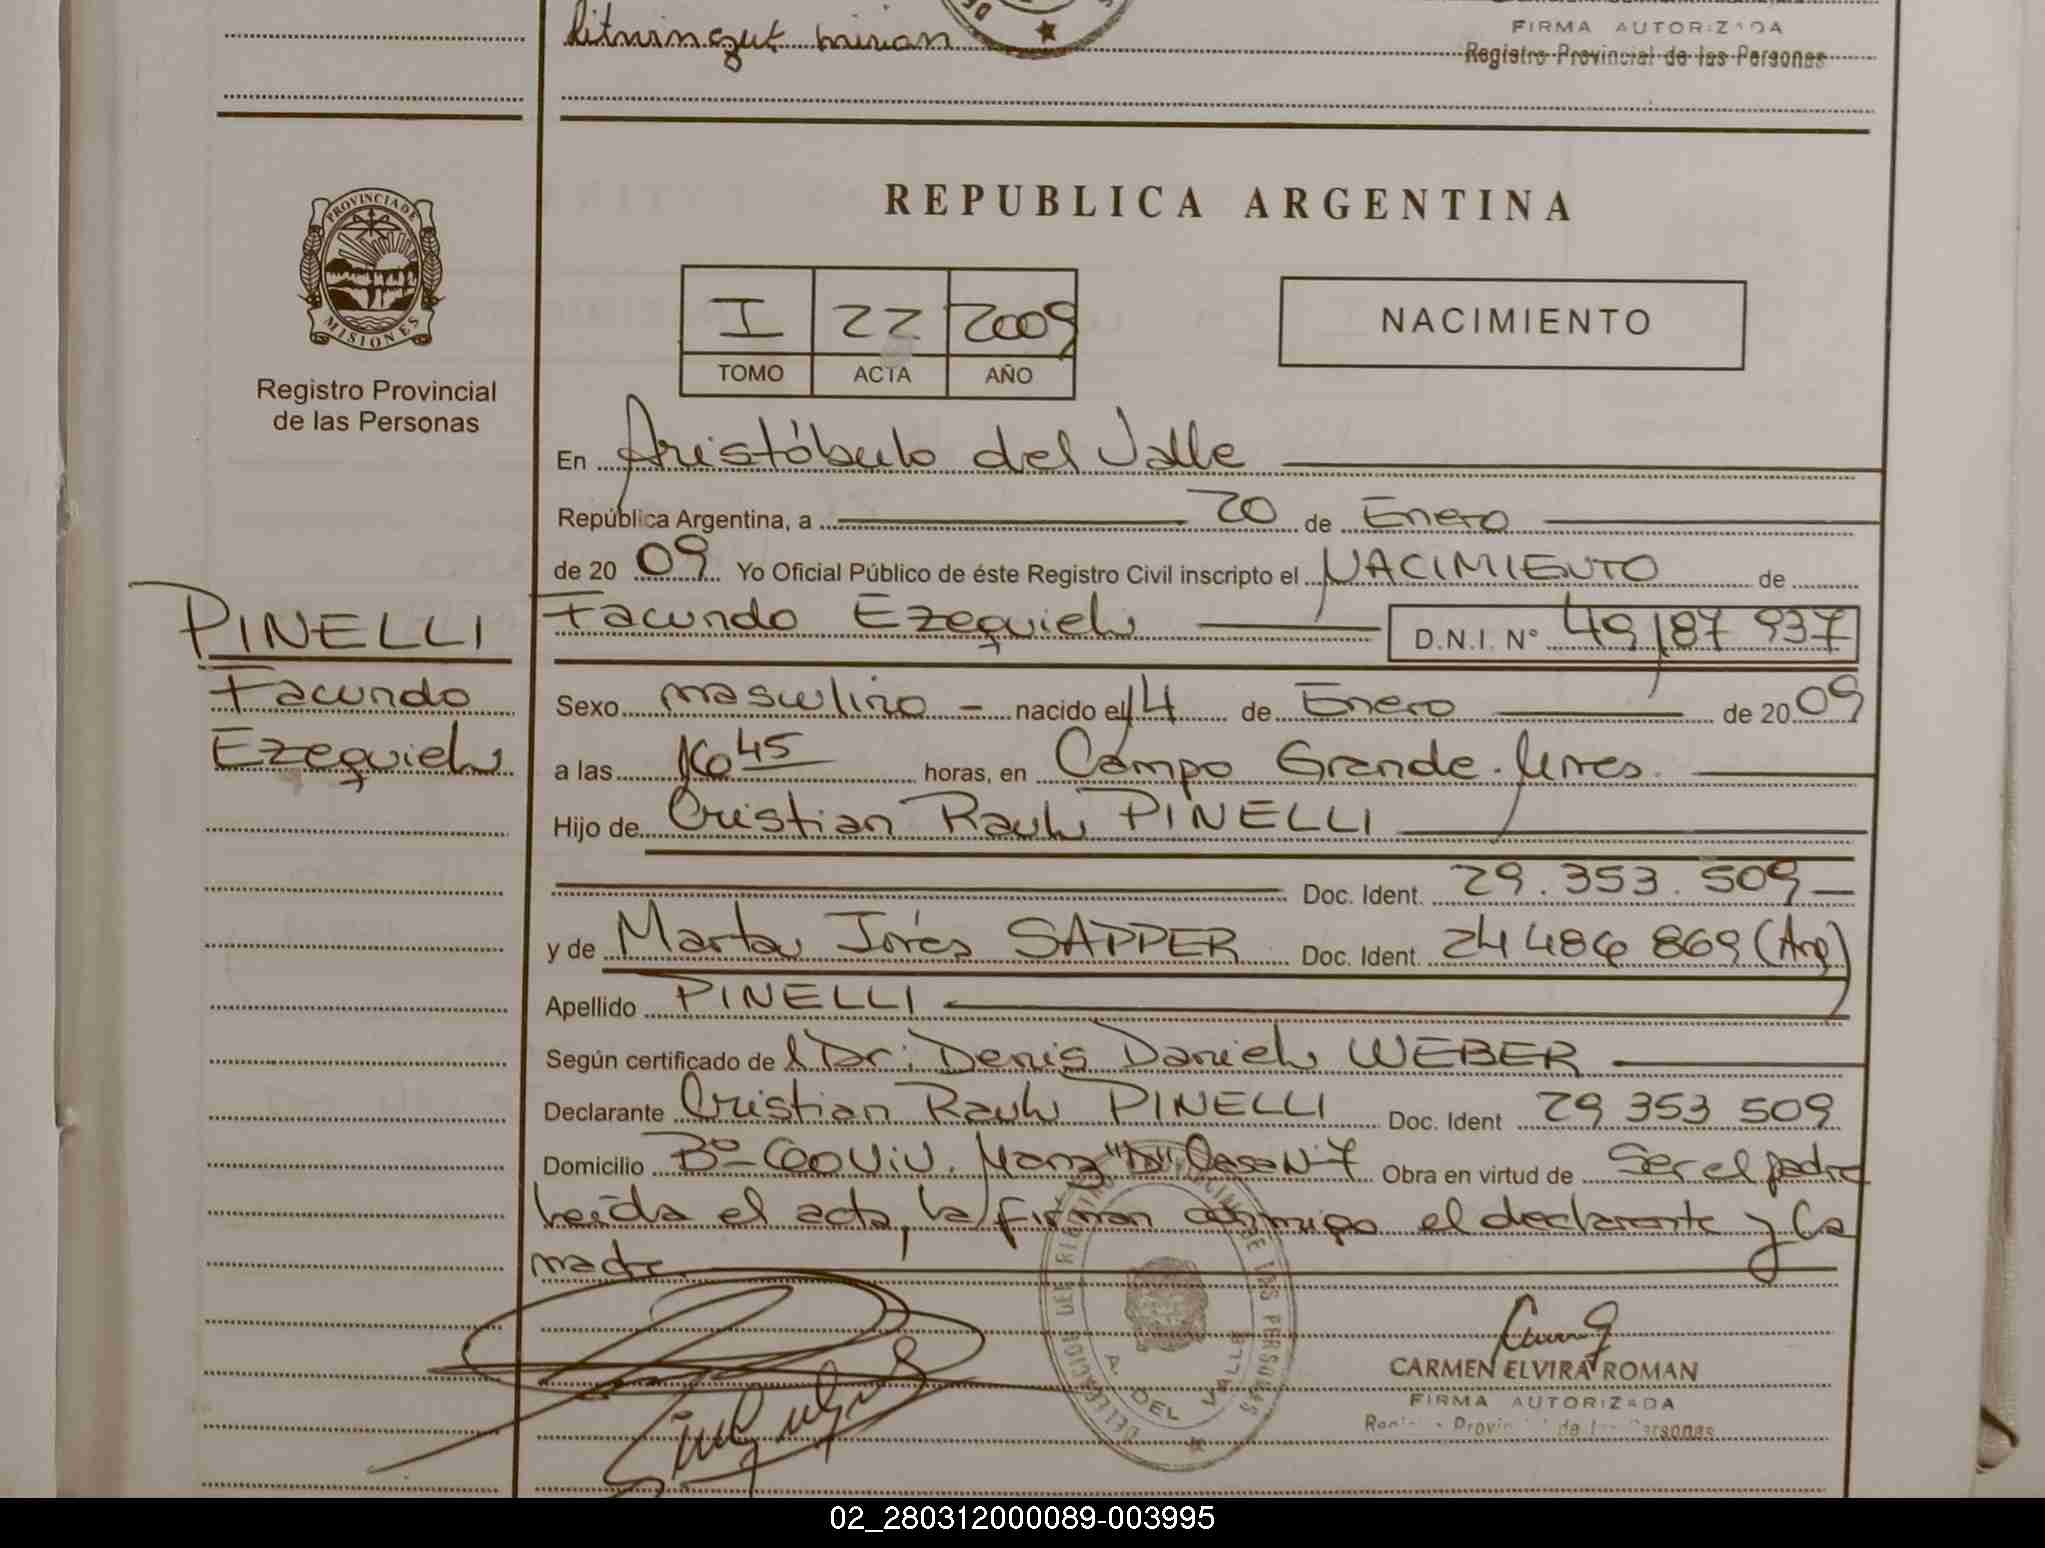 Ritmin
mirian
FIRMA AUTORIZADA
Registro Provincial de las Personas
PROVINCIA DE
MISIONES
Registro Provincial
de las Personas
REPUBLICA ARGENTINA
I 22 2009
TOMO ACTA AÑO
NACIMIENTO
En Aristóbulo del Valle
República Argentina, a 20 de Enero
de 20 09 Yo Oficial Público de éste Registro Civil inscripto el NACIMIENTO de
PINELLI
Facundo
Ezequiel
Facundo Ezequiel D.N.I. Nº 49187 937
Sexo masculino - nacido el 14 de Enero de 20 09
a las 16 45 horas, en Campo Grande. Mnes.
Hijo de Cristian Raul PINELLI
Doc. Ident. 29.353.509
y de Marta Inés SAPPER Doc. Ident. 24 486 869 (Arg)
Apellido PINELLI
Según certificado de l Dr: Denis Daniel WEBER
Declarante Cristian Raul PINELLI Doc. Ident 29 353 509
Domicilio Bº COOVIV. Manz "D" Casa Nº 7 Obra en virtud de Ser el padre
Leída el acta, la firman conmigo el declarante y la
madre
DELEGACION DEL REGISTRO PROVINCIAL DE LAS PERSONAS
A. DEL VALLE
CARMEN ELVIRA ROMAN
FIRMA AUTORIZADA
Registro Provincial de las Personas
02_280312000089-003995